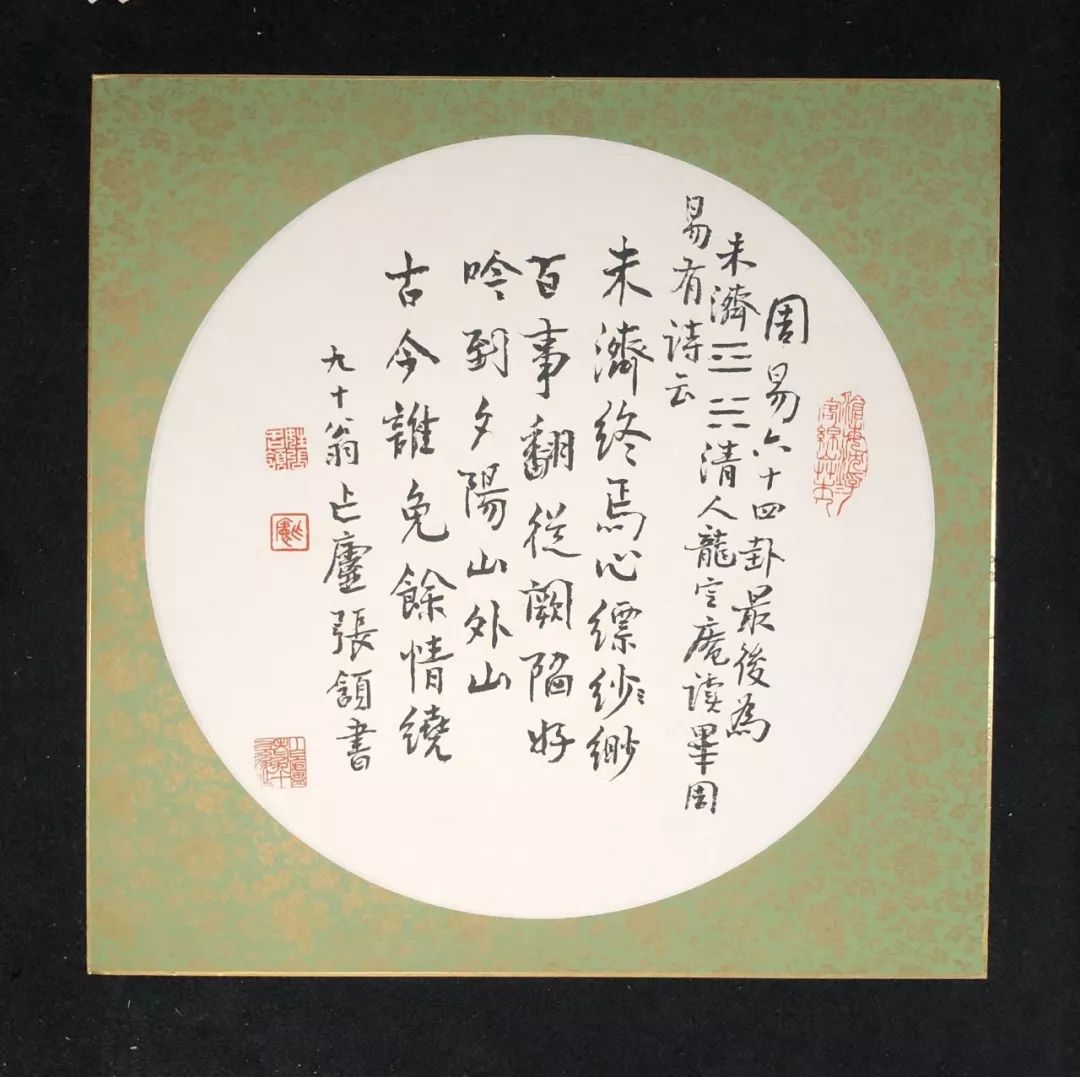 周易六十四卦最後為
未濟䷿清人龍定庵读畢周
易有詩云
未濟終焉心縹紗緲
百事翻從闕陷好
吟到夕陽山外山
古今誰免餘情繞
九十翁乍廬張頷書